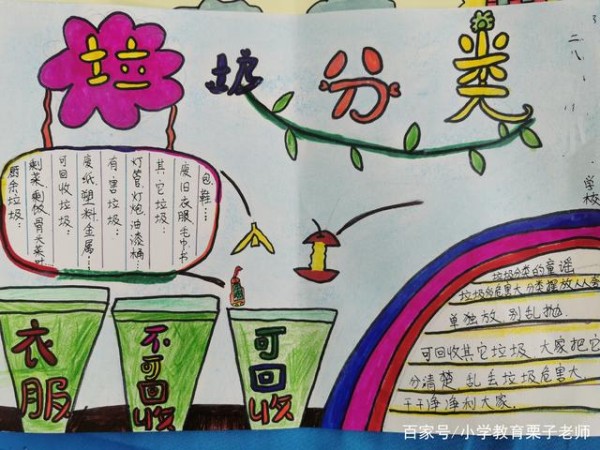 垃圾分类
学校
厨余垃圾:
剩菜.剩饭骨头菜叶
可回收垃圾:
废纸.塑料金属…
有害垃圾:
灯管.灯炮.油漆桶…
其它垃圾:
废旧衣服毛巾书
包鞋…
衣服
不可回收
可回收
垃圾分类的童谣
垃圾的危害大 分类摆放人人
单独放 别乱抛.
可回收其它垃圾 大家把它
分清楚 乱丢垃圾危害大
干干净净利大家.
百家号/小学教育栗子老师